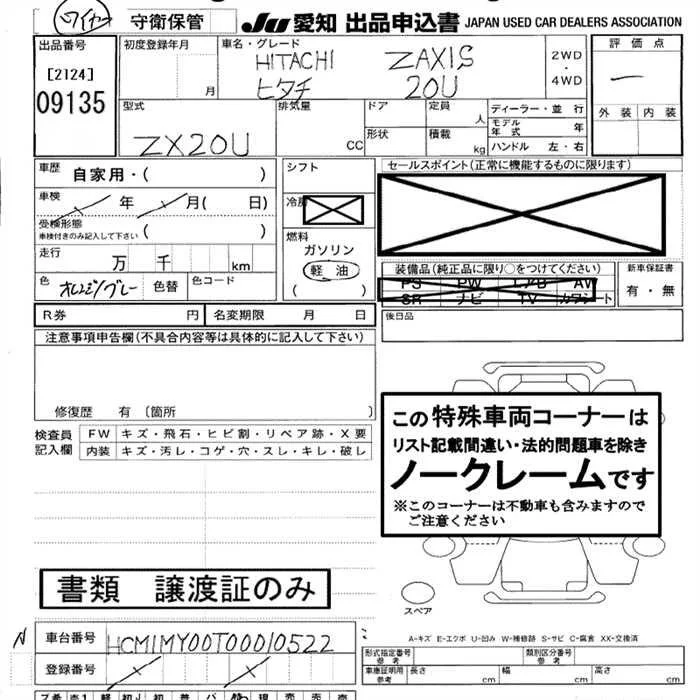 ワイヤー 守衛保管 JU 愛知 出品申込書 JAPAN USED CAR DEALERS ASSOCIATION
出品番号 初度登録年月 車名・グレード 評価点
[2124] 月 HITACHI ZAXIS 2WD
・
09135 ヒタチ 20U 4WD ー
型式 排気量 ドア 定員 ディーラー・並行 外装 内装
人 モデル年式 年
ZX20U CC 形状 積載 kg ハンドル 左・右
車歴 自家用・( ) シフト セールスポイント(正常に機能するものに限ります)
車検 年 月( 日) 冷房
受検形態 ( )
車検付きのみ記入して下さい 燃料
走行 万 千 km ガソリン 装備品(純正品に限り○をつけてください) 新車保証書
軽油 PS PW エアB AW 有・無
色 オレンジ/グレー 色替 色コード ( ) SR ナビ TV カワシート
R券 円 名変期限 月 日 後日品
注意事項申告欄(不具合内容等は具体的に記入して下さい)
修復歴 有 〔箇所 〕
検査員 FW キズ・飛石・ヒビ割・リペア跡・X要
記入欄 内装 キズ・汚レ・コゲ・穴・スレ・キレ・破レ
この特殊車両コーナーは
リスト記載間違い・法的問題車を除き
ノークレームです
※このコーナーは不動車も含みますので
ご注意ください
書類 譲渡証のみ
スペア
A-キズ E-エクボ U-凹み W-補修跡 S-サビ C-腐食 XX-交換済
N 車台番号 HCM1MY00T00010522
形式指定番号 参考 類別区分番号 参考
登録番号
車庫証明用 参考 長さ cm 幅 cm 高さ cm